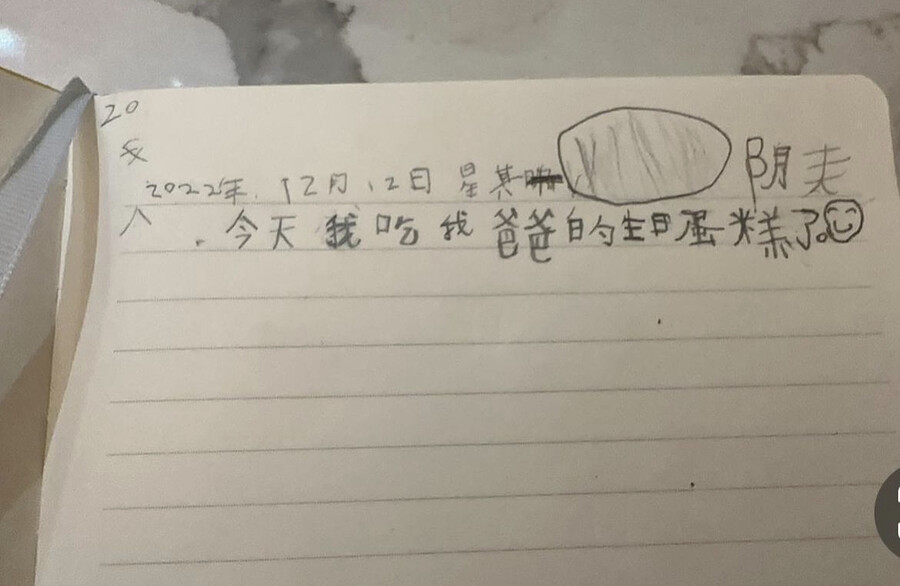 20
2022年.12月12日 星其 阴夫
入
今天我吃我爸爸的生日蛋糕了。